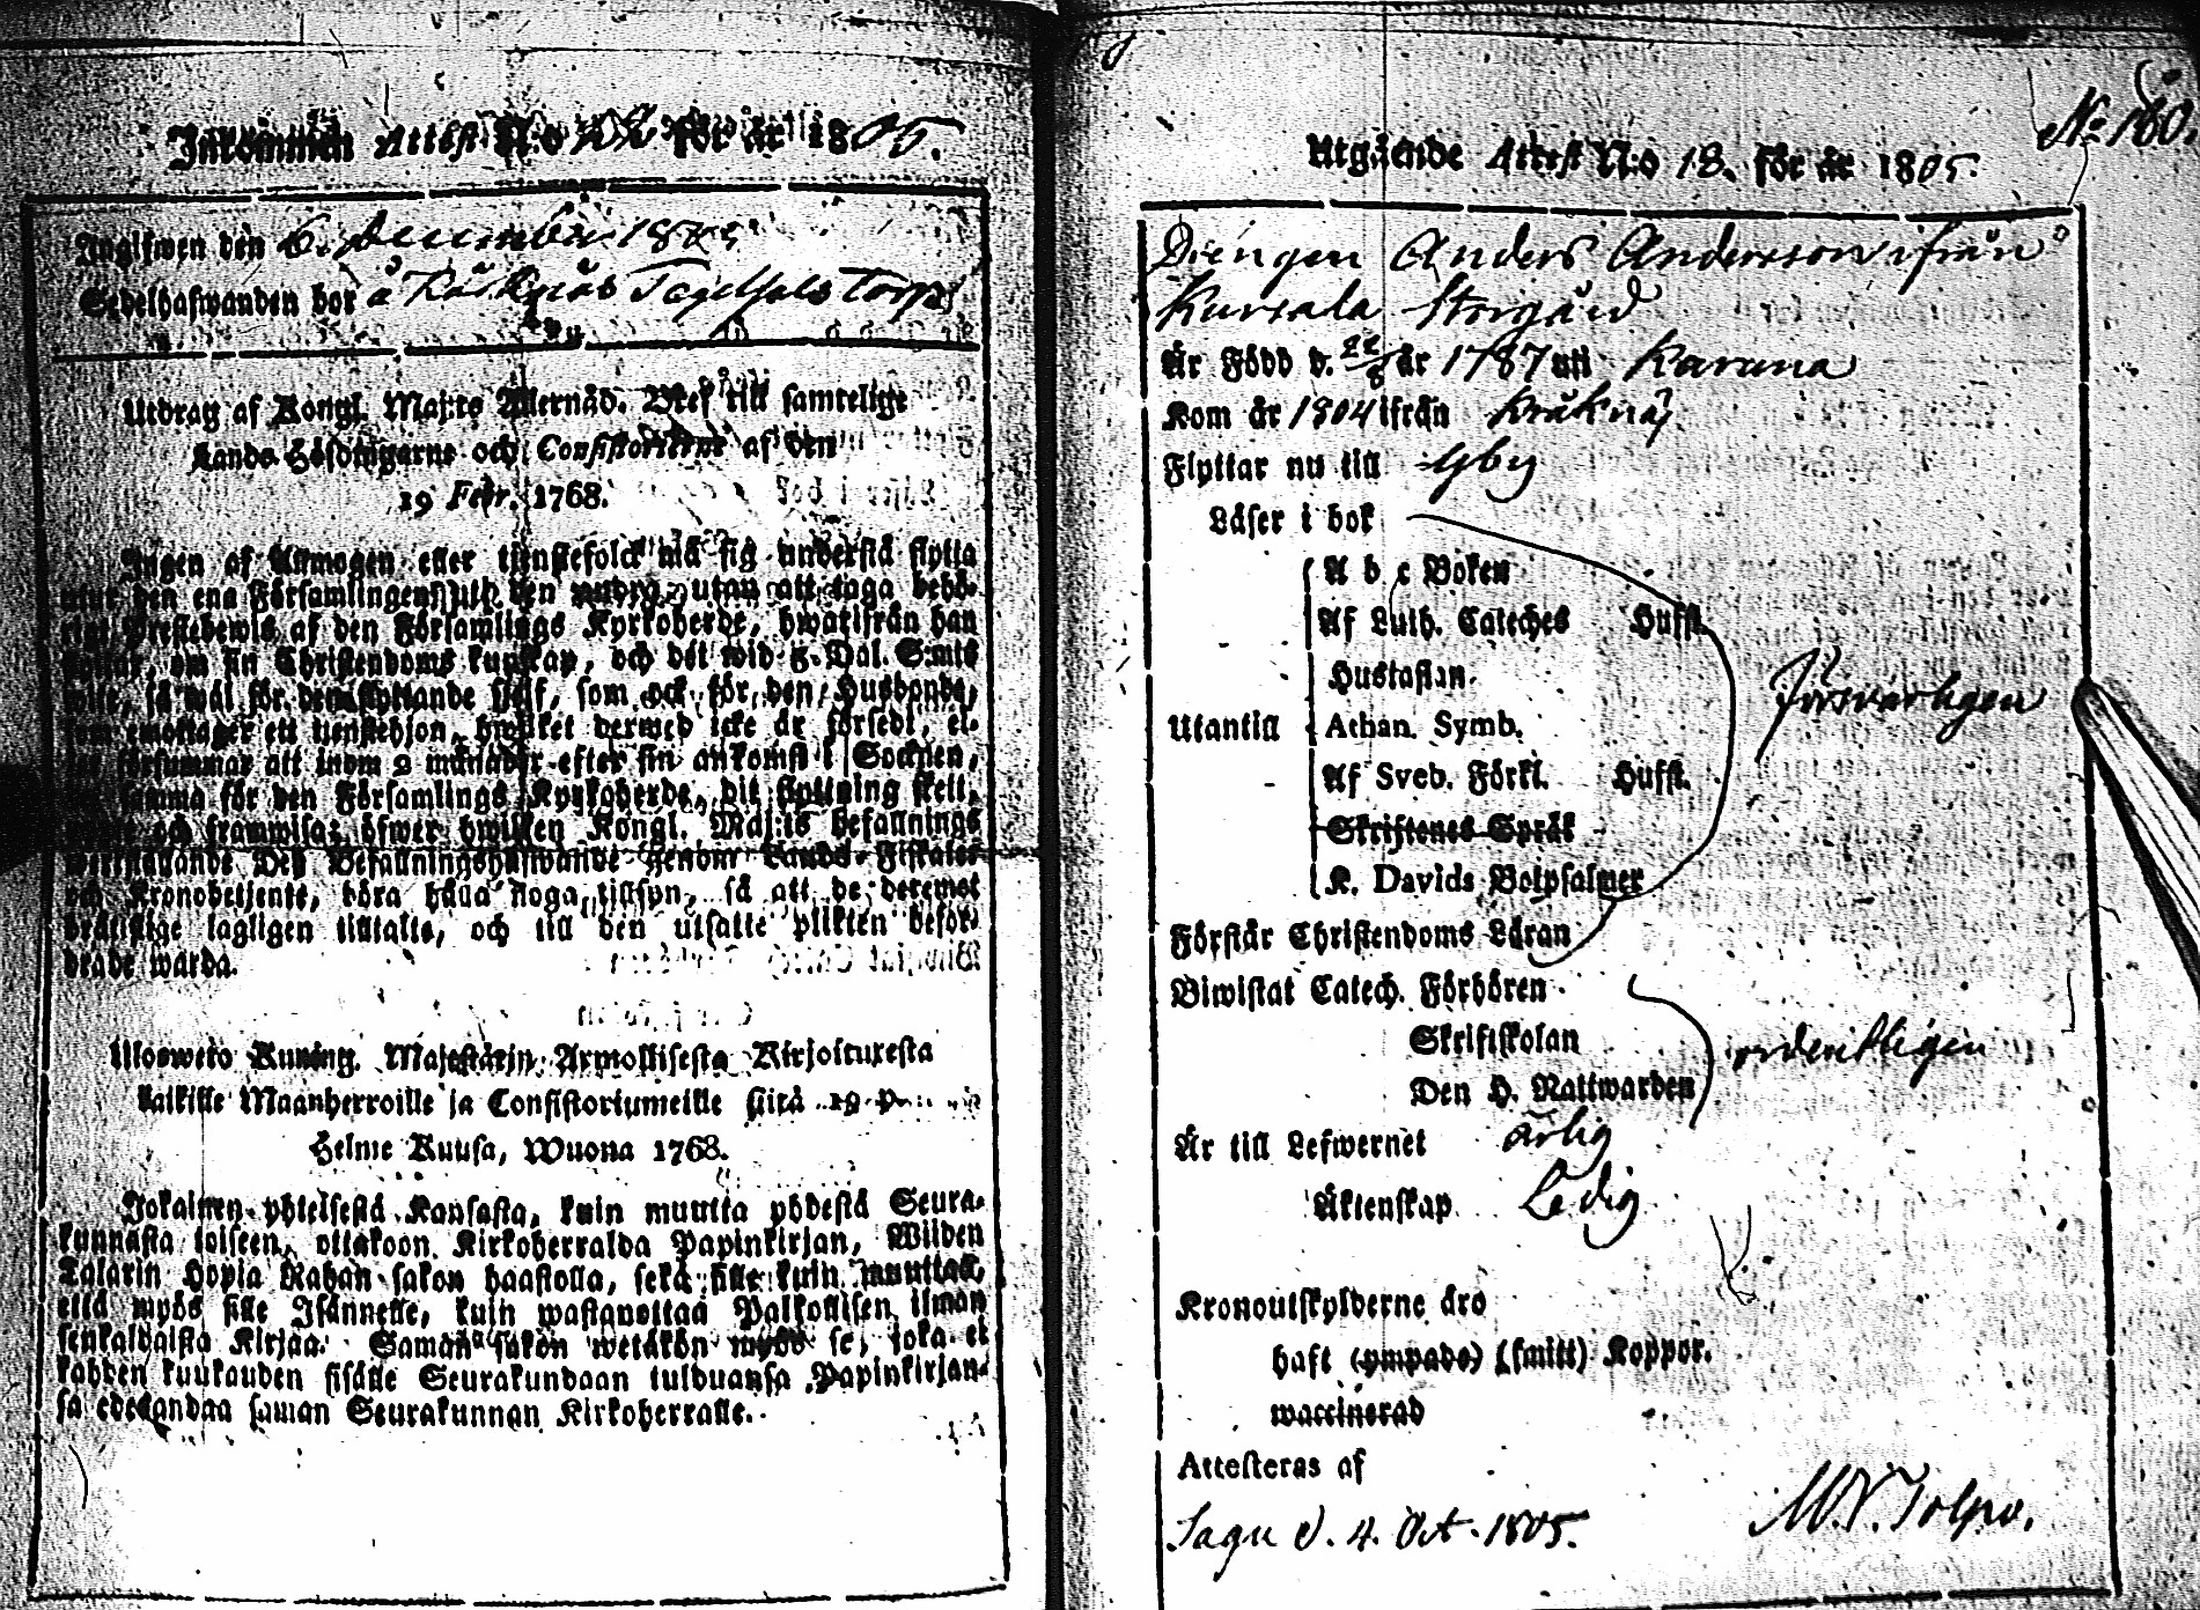 Inkommen Attest N:o för år 1805.
Angifwen den 6. December 1805
Sedelhafwanden bor å Torp
Utdrag af Kongl. Maj:ts Allernåd. Bref till samtelige
Lands-Höfdingarne och Consistorierne af den
19 Febr. 1768.
Ingen af Allmogen eller tjenstefolck må sig understå flytta
utur den ena Församlingen til den andra, utan att taga behö-
rigt Prestebewis af den Församlings Kyrkoherde, hwarifrån han
flyttar, om sin Christendoms kunskap, och det wid 5. Dal. S:mts
wite, så wäl för den flyttande sjelf, som ock för den Husbonde,
som emottager ett tienstehjon, hwilket dermed icke är försedt, el-
ler försummar att inom 2 månader efter sin ankomst i Socknen,
samma för den Församlings Kyrkoherde, dit flyttning skett,
och framwisa; öfwer hwilken Kongl. Maj:ts befallnings
werkställande Dess Befallningshafwande genom Lands-Fiskaler
och Kronobetjente, böra hålla noga tillsyn, så att de deremot
brättslige lagligen tilltalte, och till den utsatte plikten befor-
drade warda.
Ulosweto Kuning. Majestätin Armollisesta Kirjoituxesta
kaikille Maanherroille ja Consistoriumeille siitä 19 p.
Helme Kuusa, Wuona 1768.
Jokainen yhteisestä Kansasta, kuin muutta yhdestä Seura-
kunnasta toiseen, ottakoon Kirkoherralda Papinkirjan, Wiiden
Talarin Hopia Rahan sakon haastolla, sekä sille kuin muuttaa,
että myös sille Isännelle, kuin wastanottaa Palkollisen ilman
senkaldaista Kirjaa. Saman sakon wetäkön myös se, joka ei
kahden kuukauden sisälle Seurakundaan tulduansa Papinkirjan-
sa edesandaa saman Seurakunnan Kirkoherralle.
N:o 160.
Utgående Attest N:o 18. för år 1805.
Drengen Anders Andersson ifrån
Kursala Storgård
Är Född d. 22/8 år 1787 uti Karuna
Kom år 1804 ifrån Kräknäs
Flyttar nu till Yby
Läser i bok
A b c Boken
Af Luth. Cateches Hufst.
Hustaflan.
Utantill Athan. Symb.
Försvarligen
Af Sveb. Förkl. Hufst.
Skriftenes Språk
K. Davids Botpsalmer
Förstår Christendoms Läran
Biwistat Catech. Förhören
Skriftskolan ordenteligen
Den H. Nattwarden
Är till Lefwernet ärlig
Äktenskap Ledig
Kronoutskylderne äro
haft (ympade) (smitt) Koppor.
waccinerad
Attesteras af
Sagu d. 4. Oct. 1805. M.V. Tolpo.